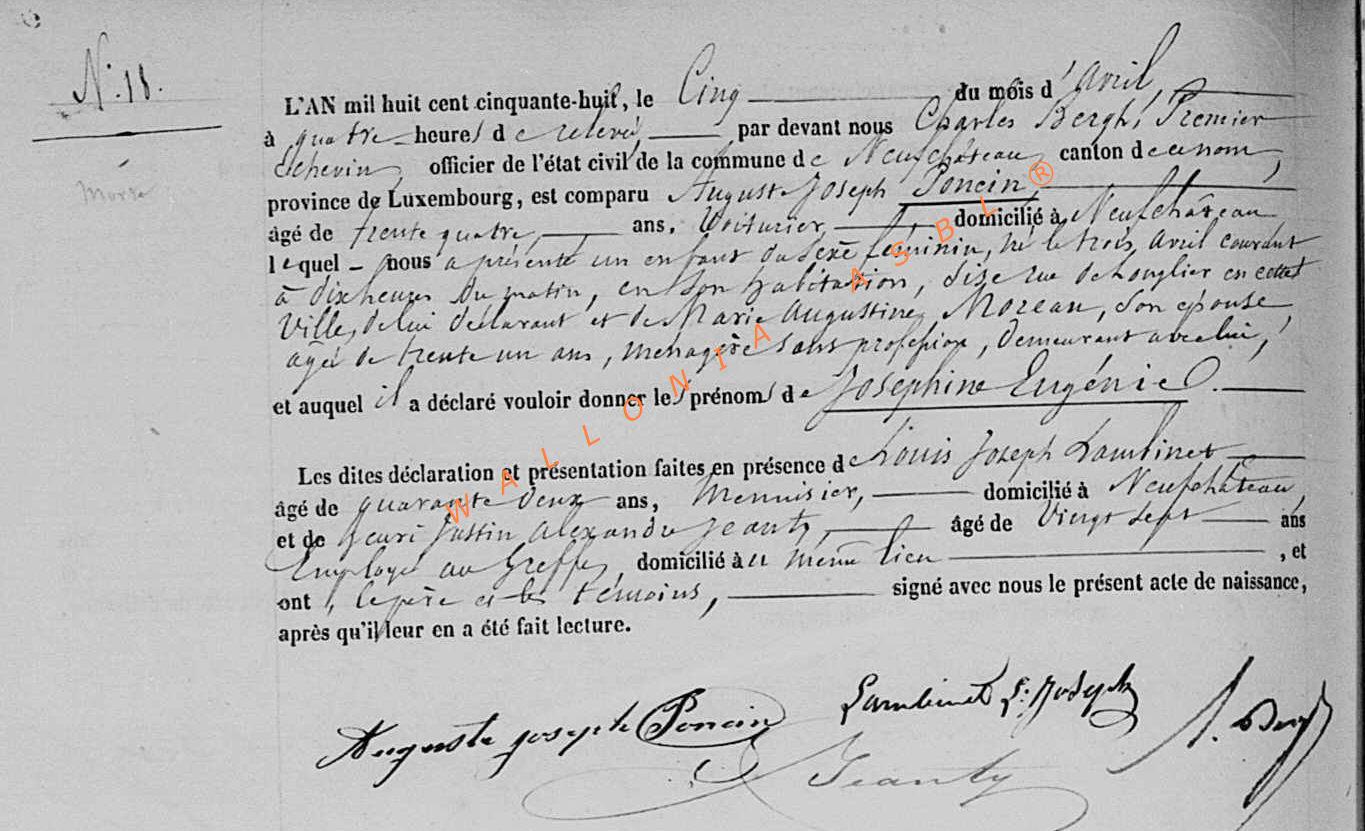 N.° 18.
L'AN mil huit cent cinquante-huit, le Cinq du mois d'avril,
à quatre heures de relevée, par devant nous Charles Bergh, Premier
Echevin, officier de l'état civil de la commune de Neufchâteau, canton de ce nom,
province de Luxembourg, est comparu Auguste Joseph Poncin,
âgé de trente quatre, ans, Voiturier, domicilié à Neufchâteau
lequel nous a présenté un enfant du sexe féminin, né le trois avril courant
à dix heures du matin, en son habitation, sise rue de Longlier en cette
Ville, de lui déclarant et de Marie Augustine Moreau, son épouse,
agée de trente un ans, menagère sans profession, demeurant avec lui,
et auquel il a déclaré vouloir donner les prénoms de Josephine Eugénie.
Les dites déclaration et présentation faites en présence de Louis Joseph Lambinet
âgé de quarante deux ans, Menuisier, domicilié à Neufchâteau,
et de Henri Justin Alexandre Jeanty, âgé de Vingt sept ans
Employé au Greffe, domicilié au même lieu , et
ont, le père et les témoins, signé avec nous le présent acte de naissance,
après qu'il leur en a été fait lecture.
Auguste joseph Poncin Lambinet L: Joseph
Jeanty
Morte
WALLONIA ASBL ®